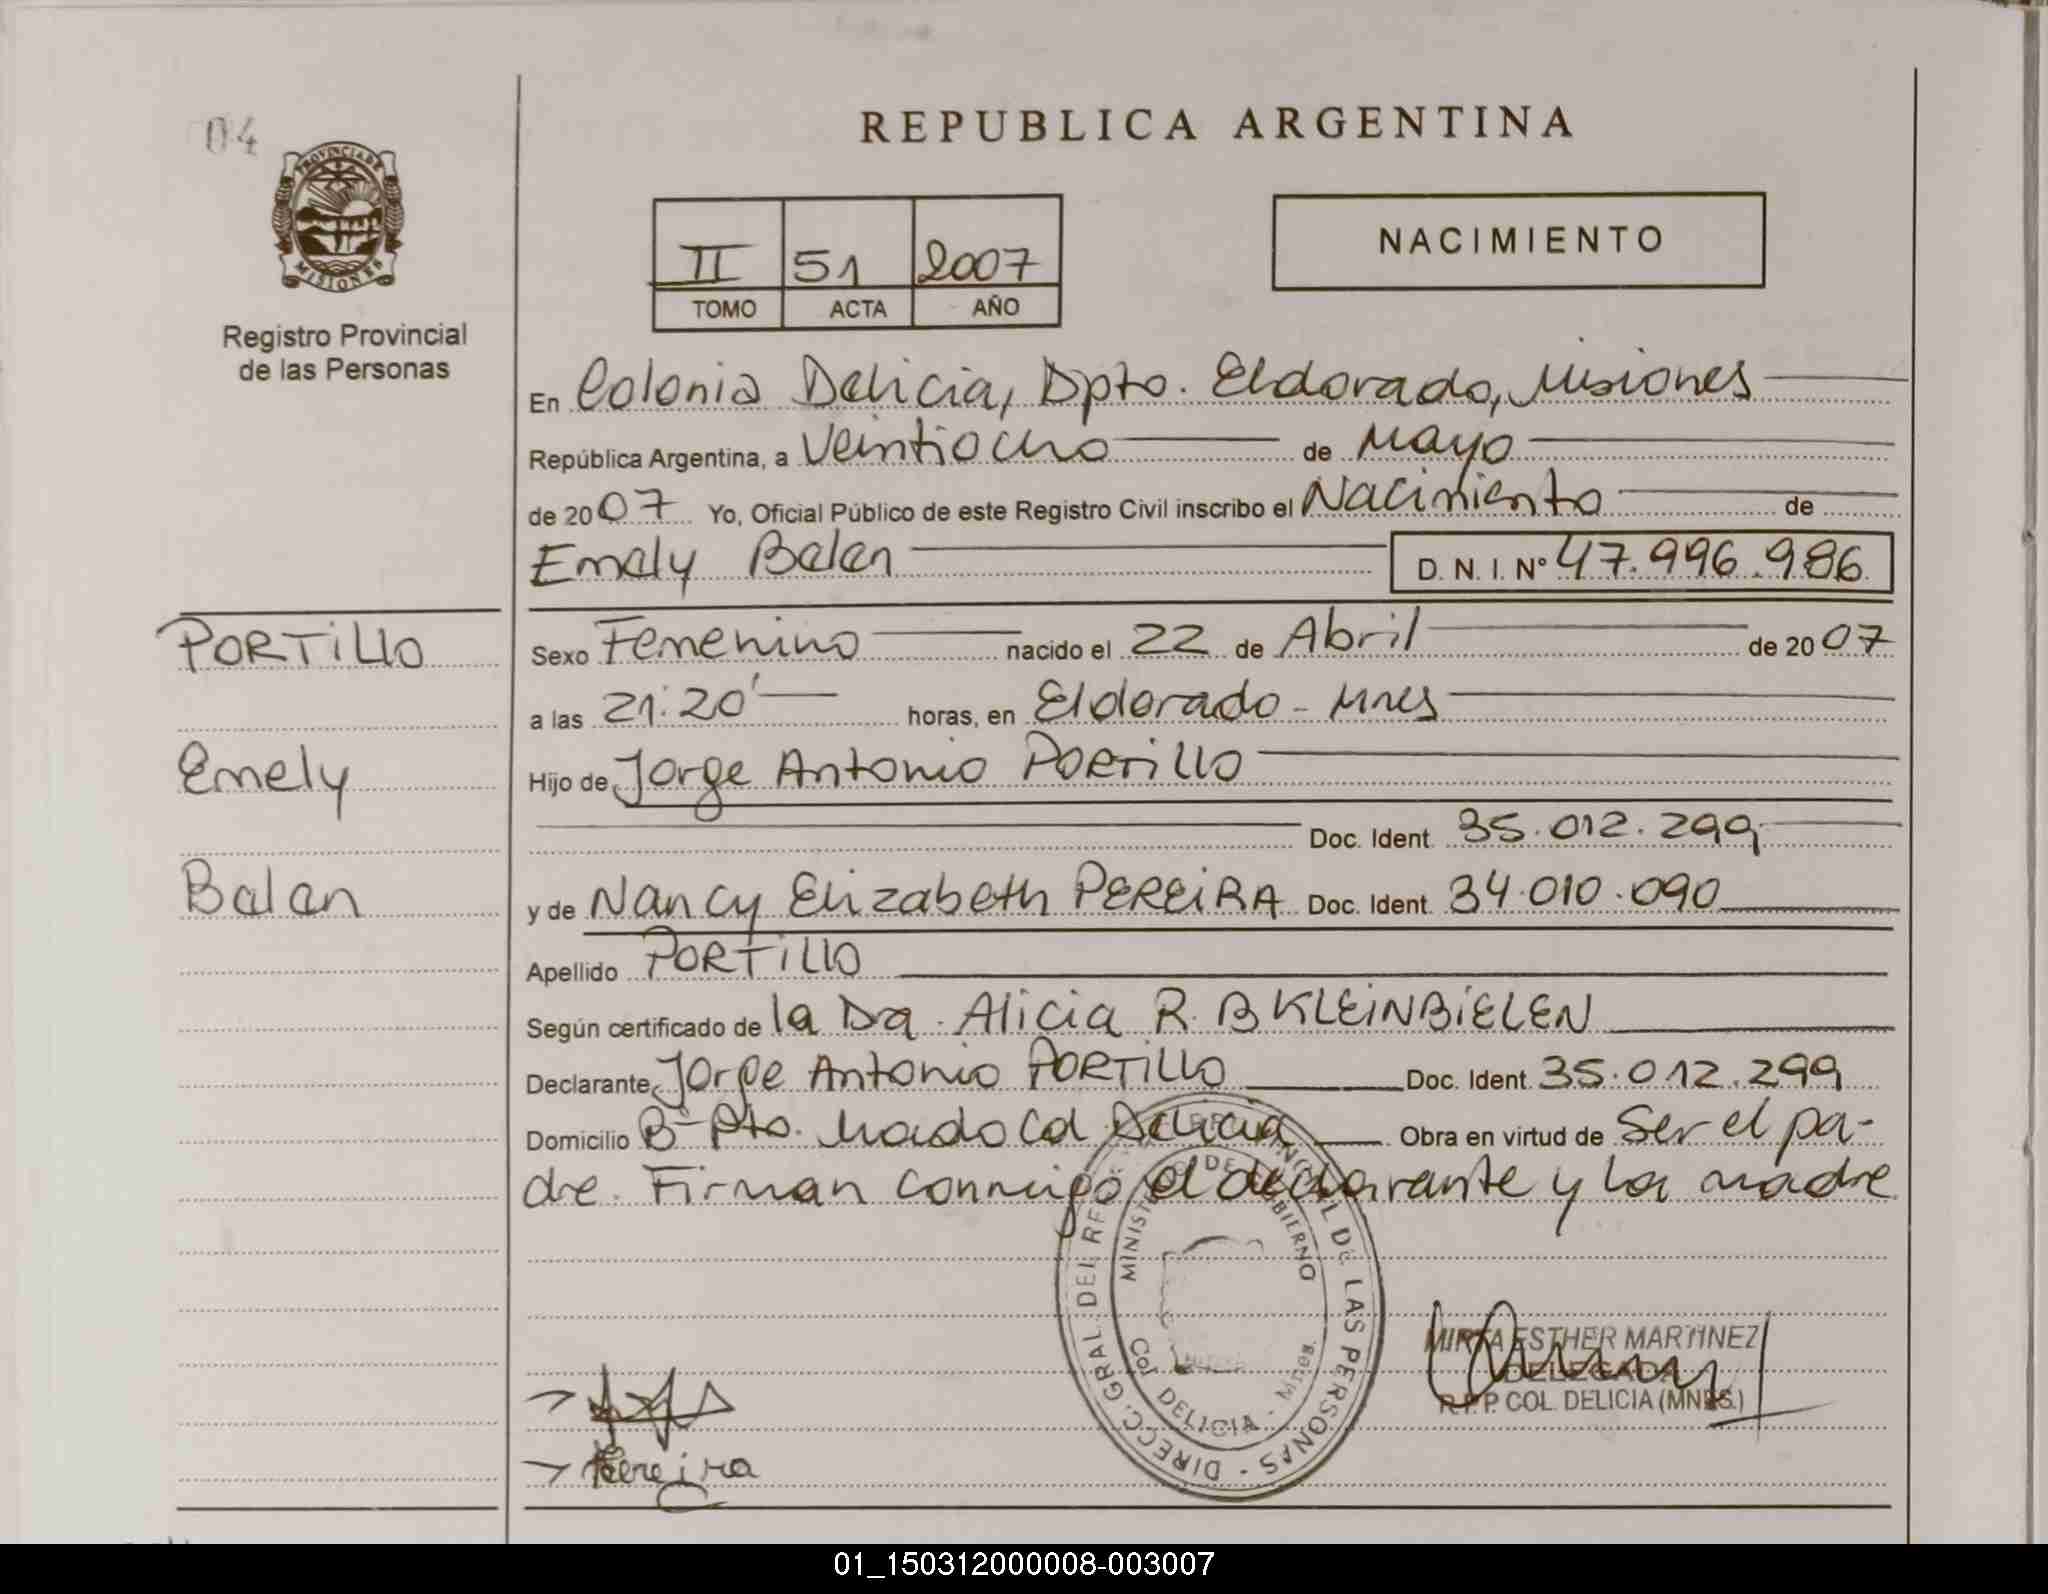 04
PROVINCIA DE
MISIONES
Registro Provincial
de las Personas
REPUBLICA ARGENTINA
II 51 2007
TOMO ACTA AÑO
NACIMIENTO
En Colonia Delicia, Dpto. Eldorado, Misiones
República Argentina, a Veintiocho de Mayo
de 2007 Yo, Oficial Público de este Registro Civil inscribo el Nacimiento de
Emely Belen D. N. I. Nº 47.996.986
PORTILLO
Emely
Belen
Sexo Femenino nacido el 22 de Abril de 2007
a las 21:20' horas, en Eldorado - Mnes
Hijo de Jorge Antonio PORTILLO
Doc. Ident. 35.012.299
y de Nancy Elizabeth PEREIRA Doc. Ident. 34.010.090
Apellido PORTILLO
Según certificado de la Dra. Alicia R. B KLEINBIELEN
Declarante Jorge Antonio PORTILLO Doc. Ident. 35.012.299
Domicilio Bº Pto. Mado Col Delicia Obra en virtud de Ser el pa-
dre. Firman conmigo el declarante y la madre
DIRECC. GRAL. DEL REG. PROVINCIAL DE LAS PERSONAS
MINISTERIO DE GOBIERNO
Col DELICIA - Mnes.
MIRTA ESTHER MARTINEZ
DELEGADA
R.P.P. COL. DELICIA (MNES.)
Pereira
01_150312000008-003007